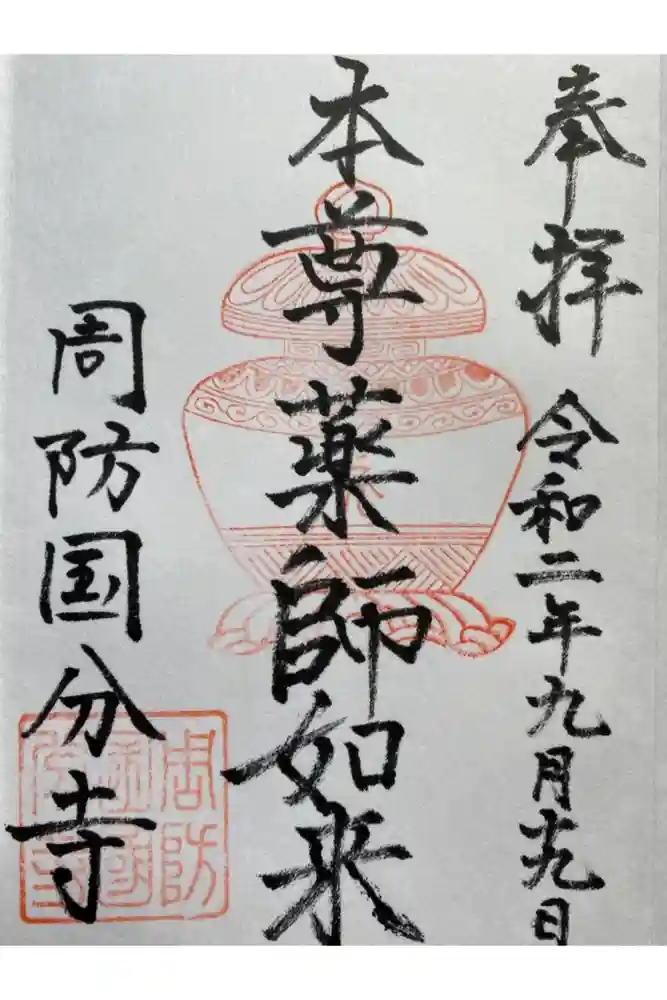 奉拝 令和二年九月九日
本尊薬師如来
周防国分寺